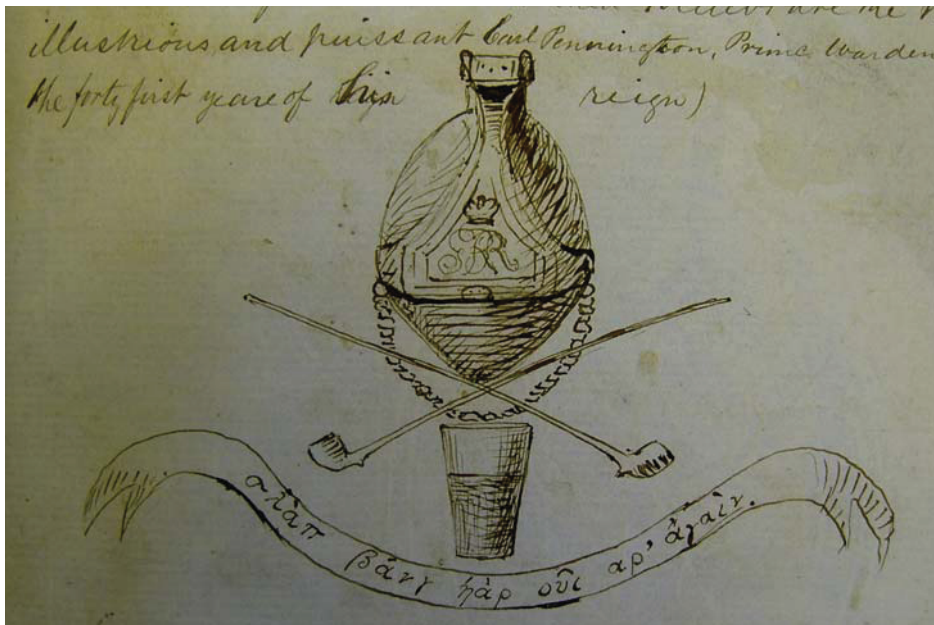 are the
illustrious and puissant Earl Pennington, Prime Warden
the forty first yeare of his reign)
σλὰπ βάνγ ἡὰρ οὗι αρ’ ἀγαὶν.